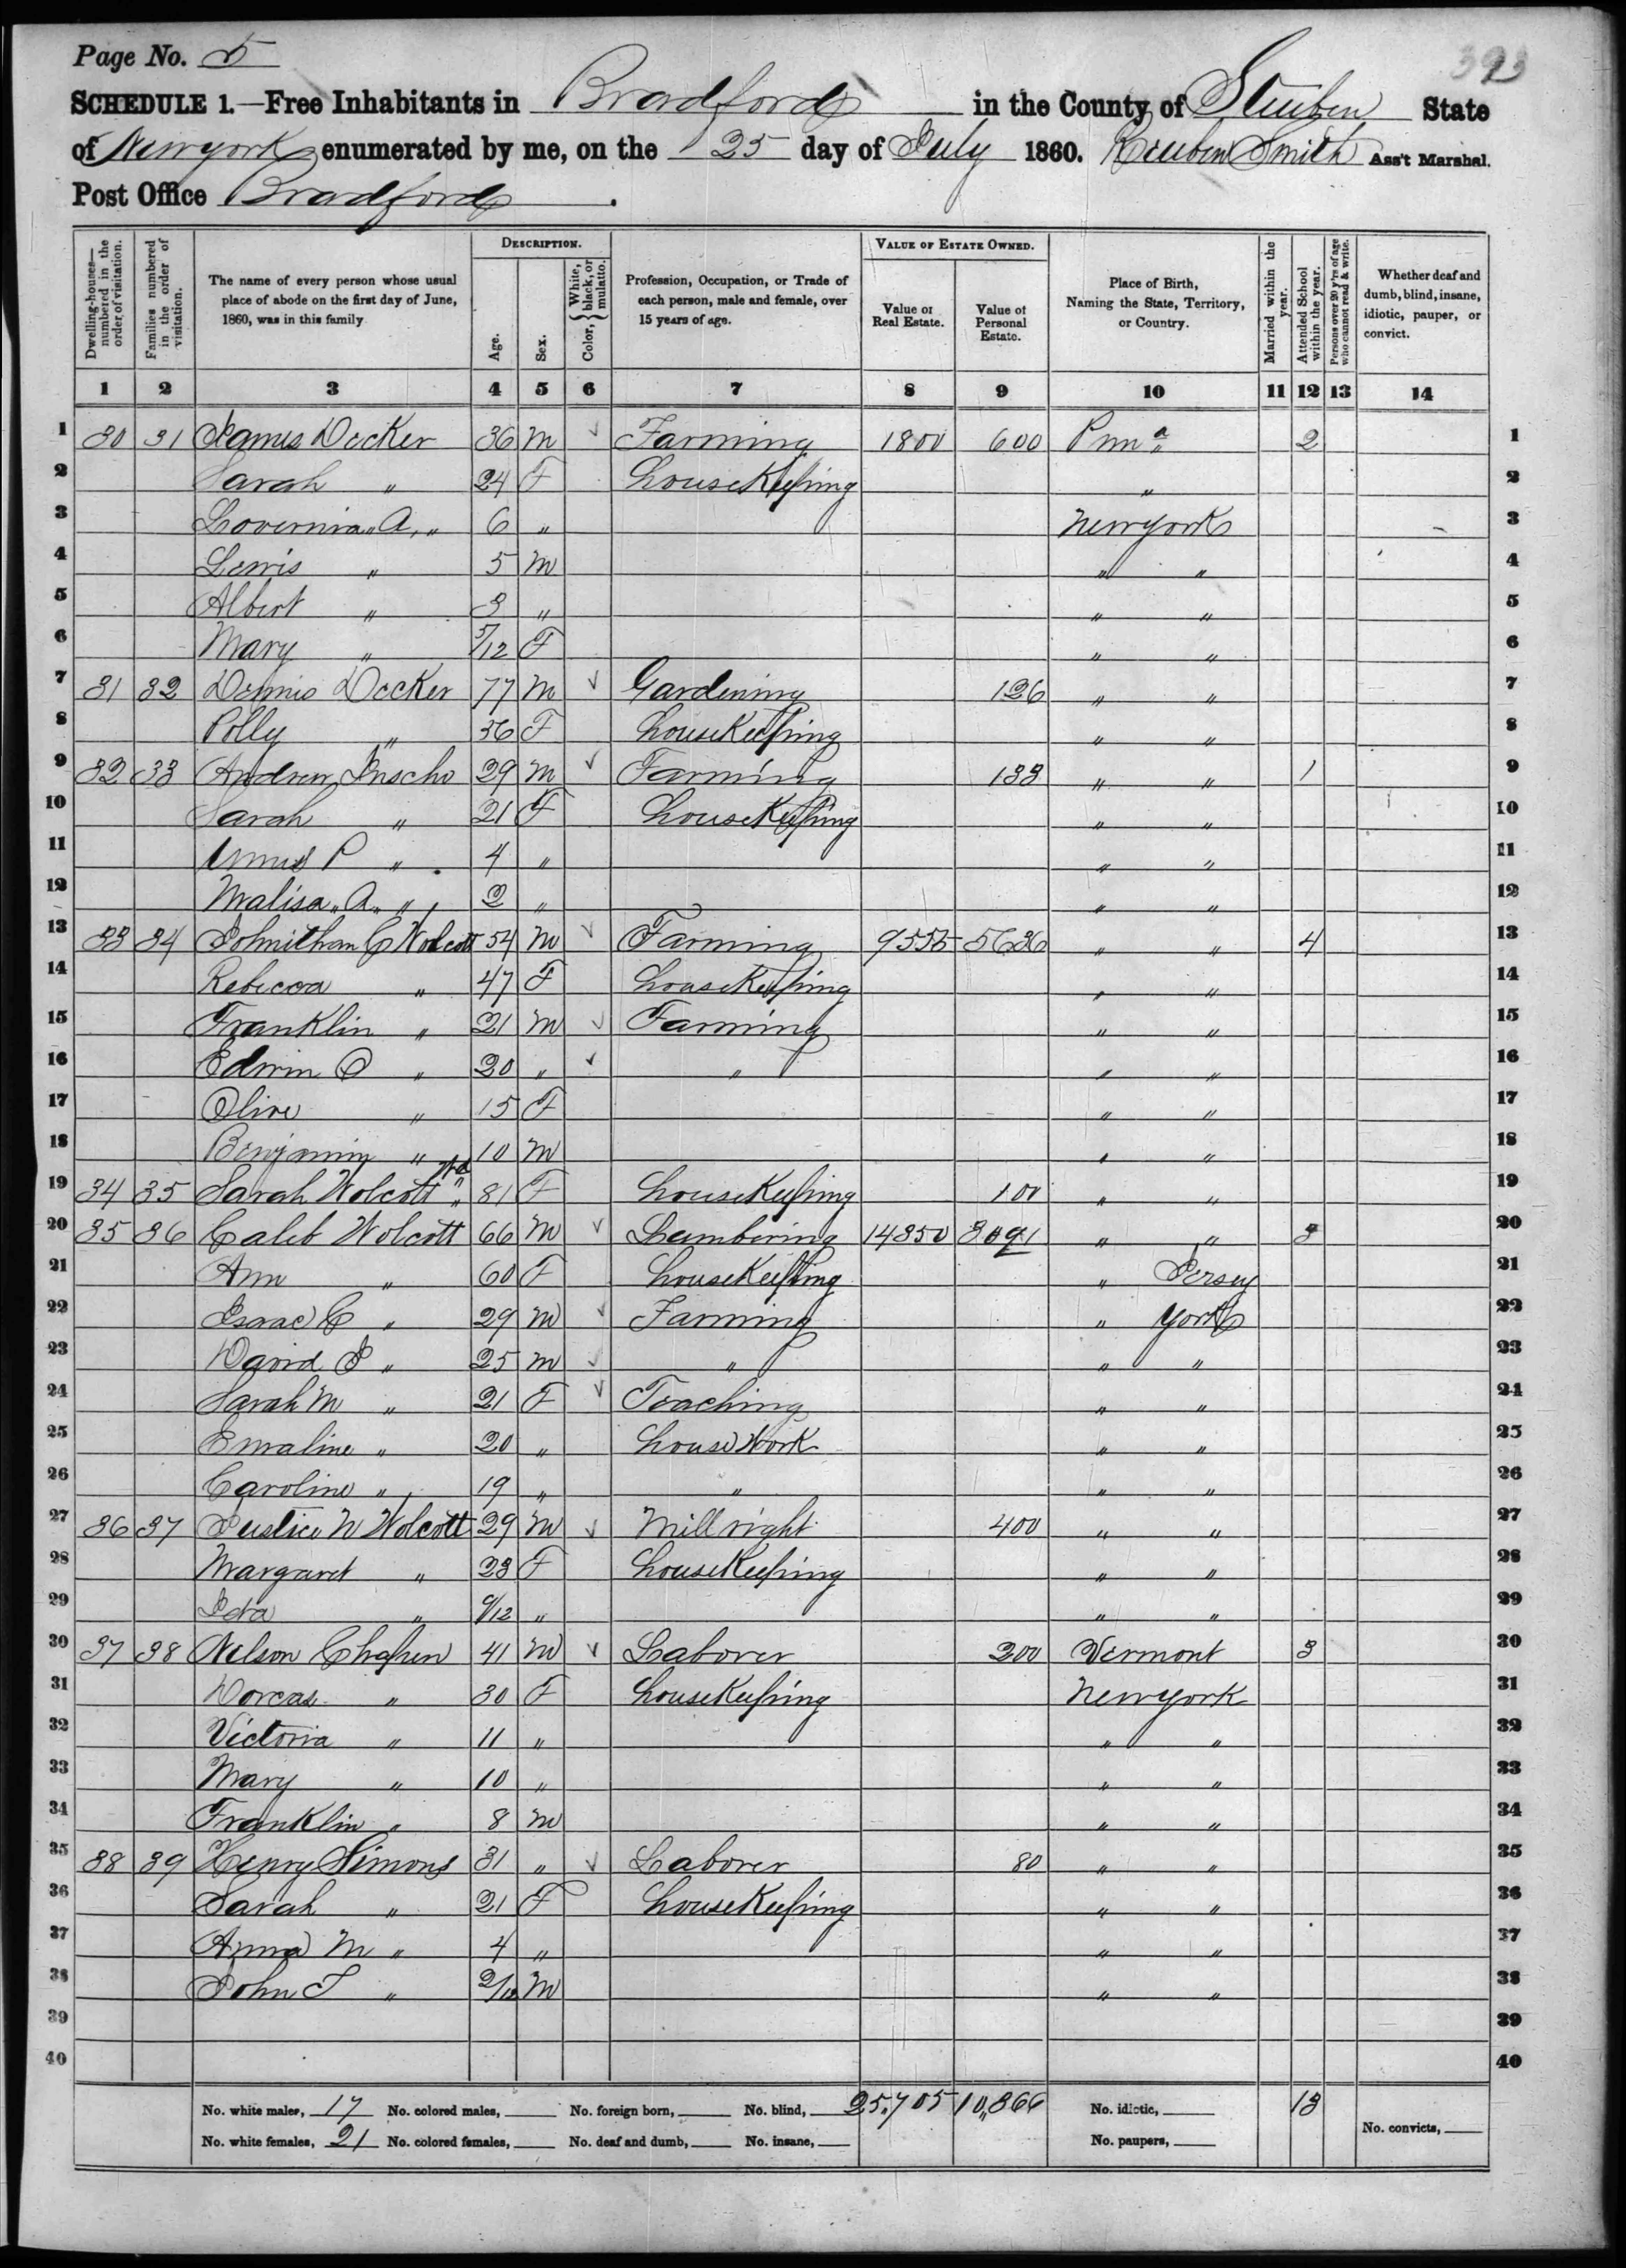 Page No. 5
393
SCHEDULE 1.—Free Inhabitants in Bradford in the County of Steuben State
of Newyork enumerated by me, on the 25 day of July 1860. Reuben Smith Ass't Marshal.
Post Office Bradford.
Dwelling-houses—numbered in the order of visitation. Families numbered in the order of visitation. The name of every person whose usual place of abode on the first day of June, 1860, was in this family. DESCRIPTION. Age. Sex. Color, {White, black, or mulatto. Profession, Occupation, or Trade of each person, male and female, over 15 years of age. VALUE OF ESTATE OWNED. Value of Real Estate. Value of Personal Estate. Place of Birth, Naming the State, Territory, or Country. Married within the year. Attended School within the year. Persons over 20 y'rs of age who cannot read & write. Whether deaf and dumb, blind, insane, idiotic, pauper, or convict.
1 2 3 4 5 6 7 8 9 10 11 12 13 14
1 30 31 James Decker 36 m Farming 1800 600 Penn a 2 1
2 Sarah " 24 F housekeeping " 2
3 Lovernia A. " 6 " Newyork 3
4 Lewis " 5 m " " 4
5 Albert " 3 " " " 5
6 Mary " 5/12 F " " 6
7 31 32 Dennis Decker 77 m Gardening 126 " " 7
8 Polly " 56 F housekeeping " " 8
9 32 33 Andrew Inscho 29 m Farming 133 " " 1 9
10 Sarah " 21 F housekeeping " " 10
11 P " 4 " " " 11
12 Malisa A. " 2 " " " 12
13 33 34 Johnithan C Wolcott 54 m Farming 9555 5636 " " 4 13
14 Rebecca " 47 F housekeeping " " 14
15 Franklin " 21 m Farming " " 15
16 Edwin O " 20 " " " " 16
17 Olive " 15 F " " 17
18 Benjamin " 10 m " " 18
19 34 35 Sarah Wolcott " 81 F housekeeping 100 " " 19
20 35 36 Caleb Wolcott 66 m Lumbering 14350 3091 " " 3 20
21 Ann " 60 F housekeeping " Jersey 21
22 Isaac C " 29 m Farming " York 22
23 David J " 25 m " " " 23
24 Sarah M " 21 F Teaching " " 24
25 Emaline " 20 " house Work " " 25
26 Caroline " 19 " " " " 26
27 36 37 Justice W Wolcott 29 m Mill right 400 " " 27
28 Margaret " 23 F housekeeping " " 28
29 Ida " 9/12 " " " 29
30 37 38 Nelson Chapen 41 m Laborer 200 Vermont 3 30
31 Dorcas " 30 F housekeeping Newyork 31
32 Victoria " 11 " " " 32
33 Mary " 10 " " " 33
34 Franklin " 8 m " " 34
35 38 39 Henry Simons 31 " Laborer 80 " " 35
36 Sarah " 21 F housekeeping " " 36
37 Anna M " 4 " " " 37
38 John T " 2/12 m " " 38
39 39
40 40
No. white males, 17 No. colored males, No. foreign born, No. blind, 25,705 10,366 No. idiotic, 13
No. white females, 21 No. colored females, No. deaf and dumb, No. insane, No. paupers, No. convicts,